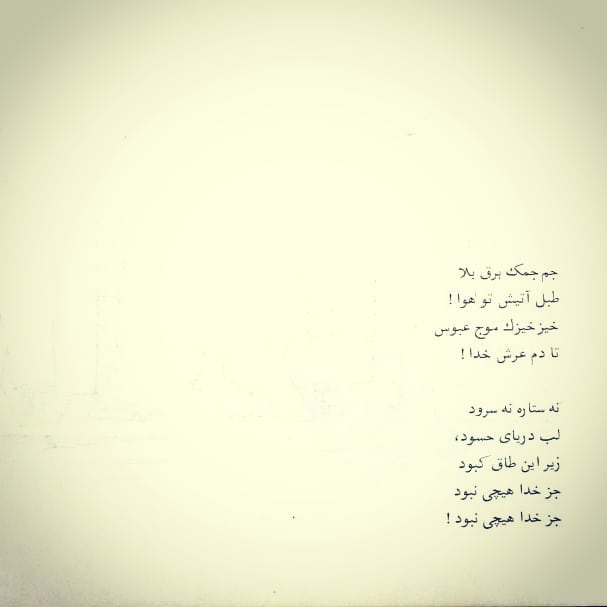 جم جمک برق بلا
طبل آتیش تو هوا !
خیزخیزك موج عبوس
تا دم عرش خدا !
نه ستاره نه سرود
لب دریای حسود،
زیر این طاق کبود
جز خدا هیچی نبود
جز خدا هیچی نبود !